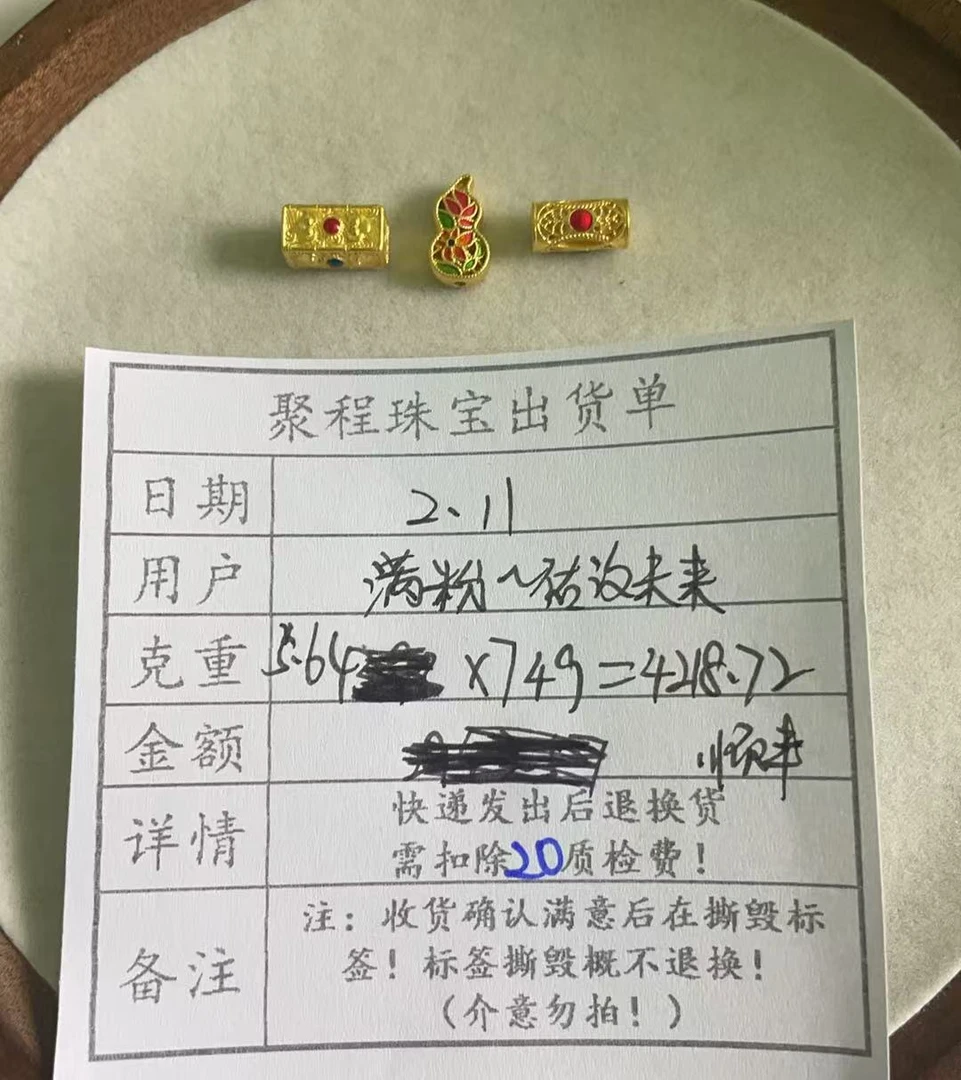 聚程珠宝出货单
日期 2、11
用户 满粉~ 未来
克重 5.64 ×749=4218.72
金额 顺丰
详情 快递发出后退换货
需扣除20质检费！
备注 注：收货确认满意后在撕毁标
签！标签撕毁概不退换！
（介意勿拍！）